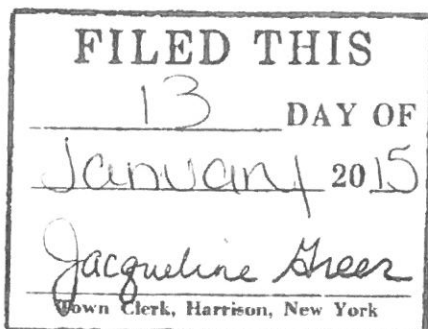 FILED THIS
13 DAY OF
January 2015
Jacqueline Greer
Town Clerk, Harrison, New York